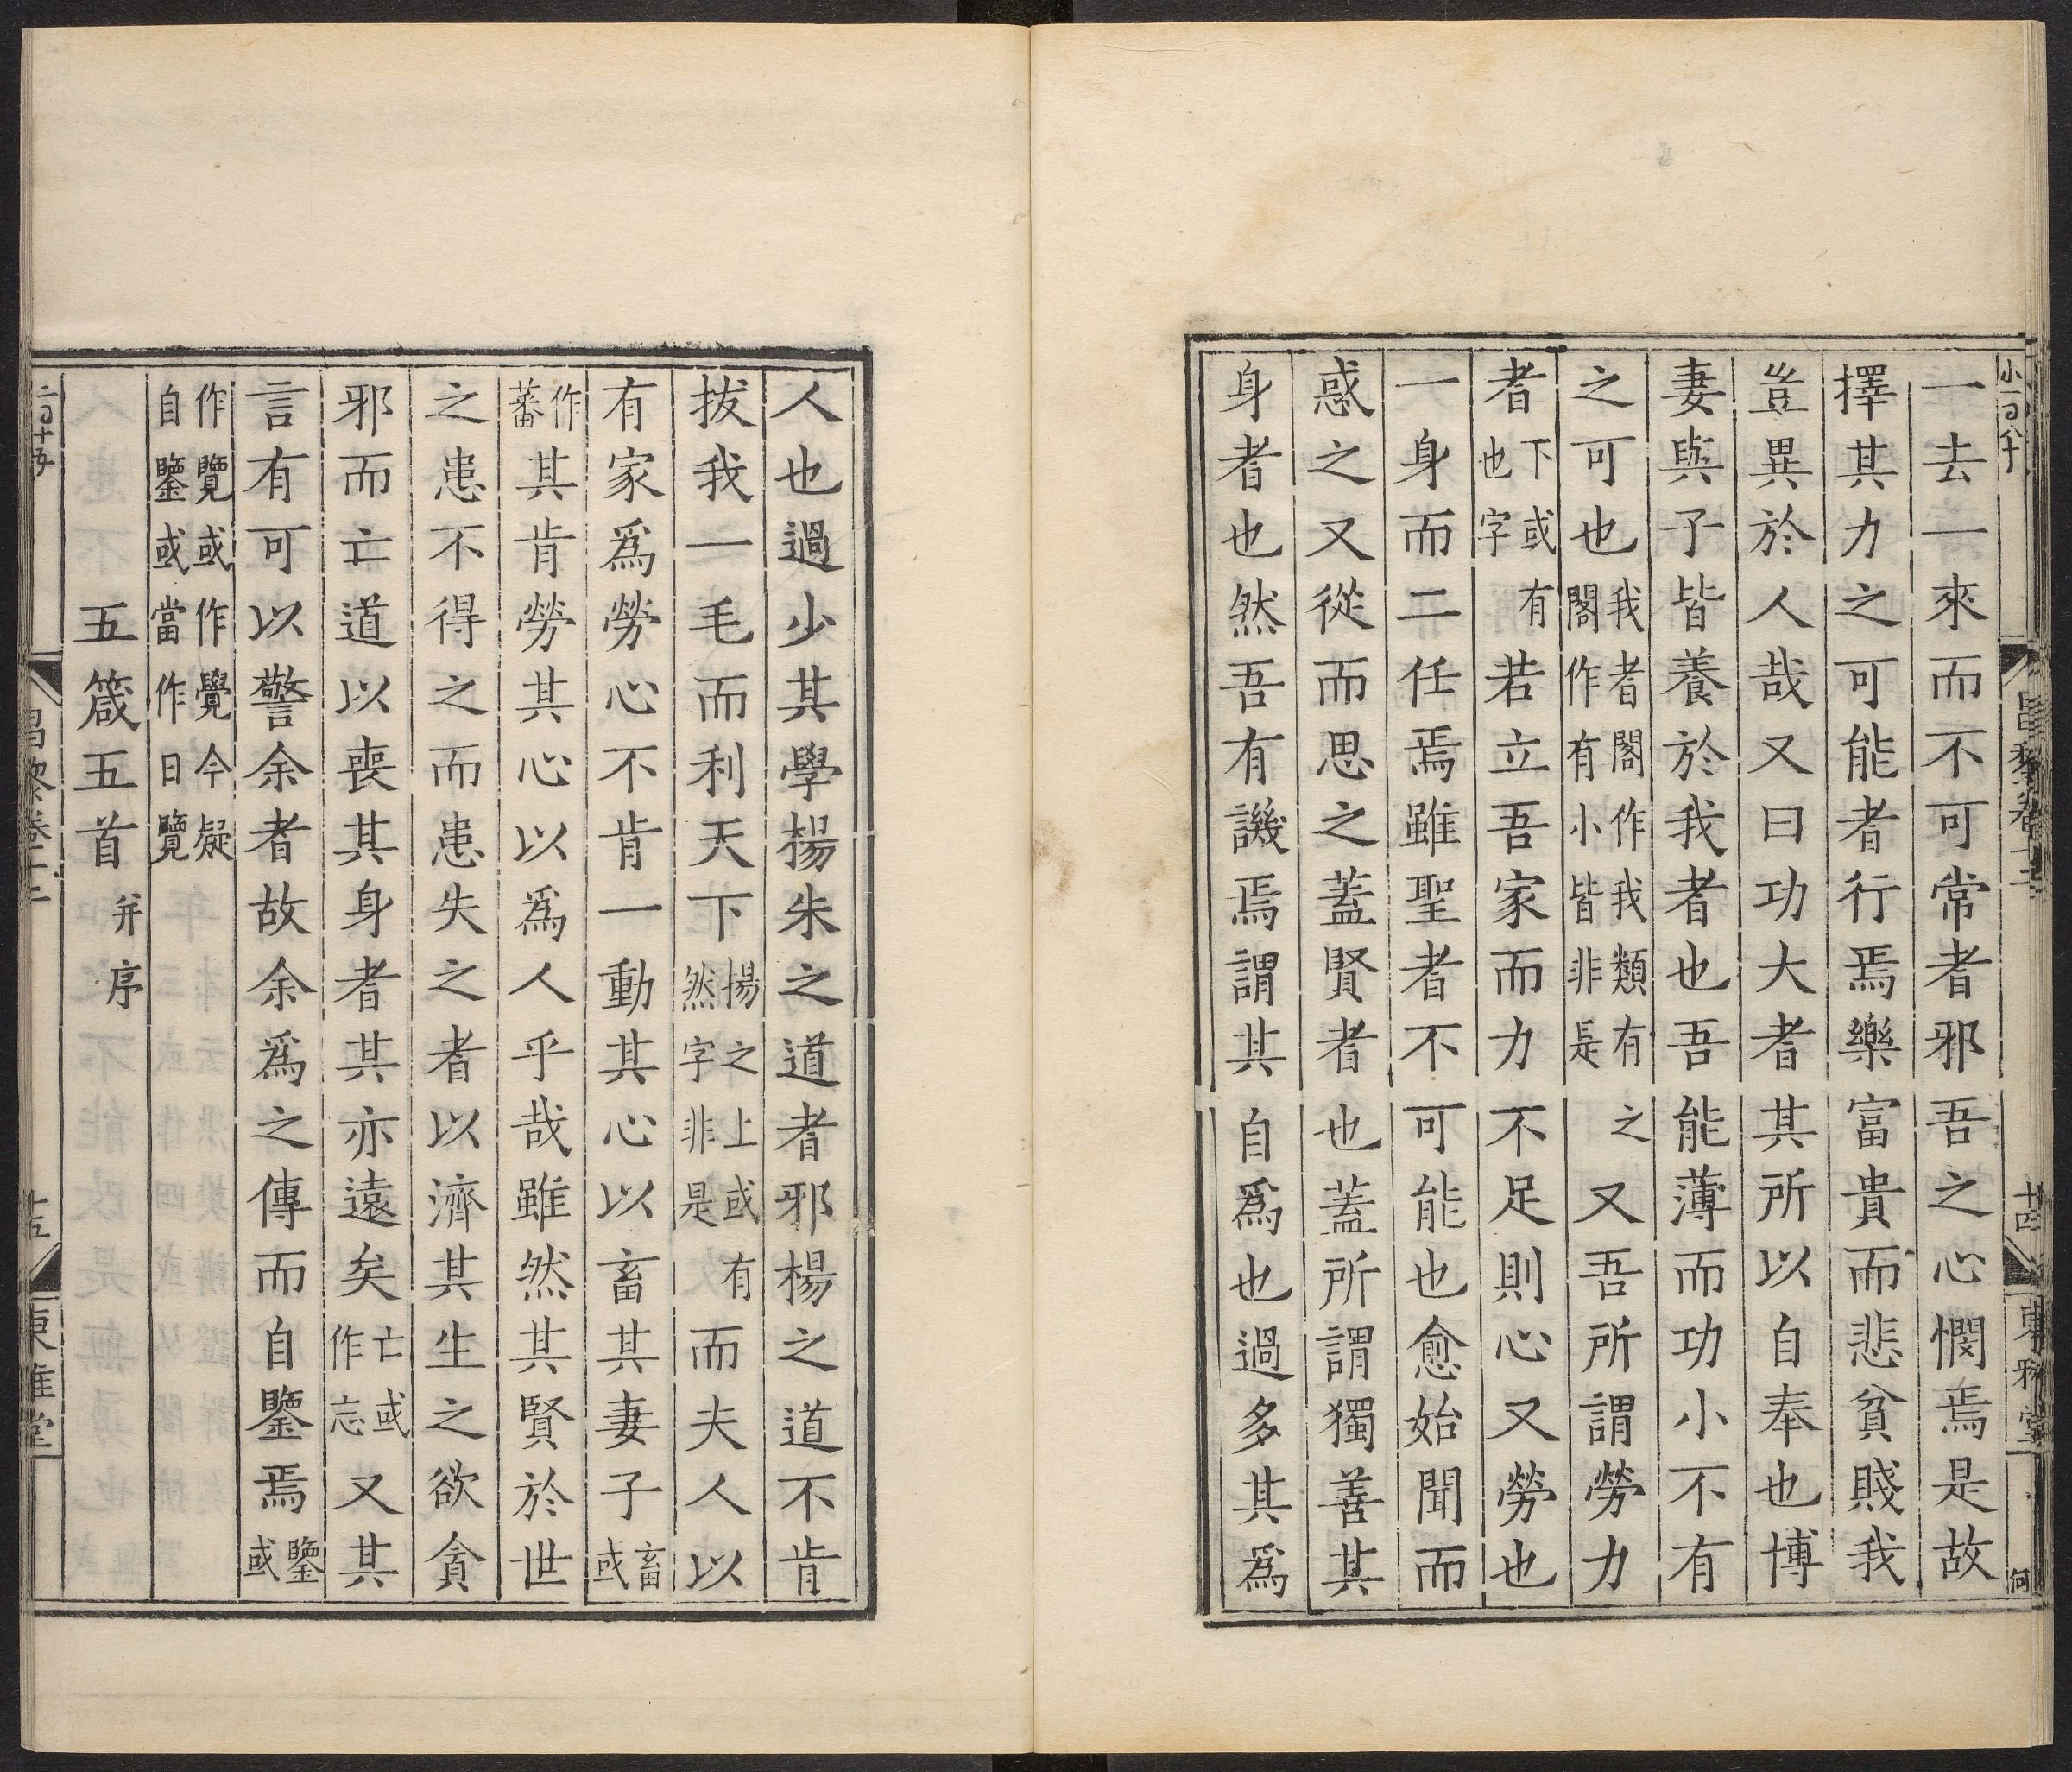 小一百八十
昌黎卷十二
十四
東雅堂
何
一去一來而不可常者邪吾之心憫焉是故
擇其力之可能者行焉樂富貴而悲貧賤我
豈異於人哉又曰功大者其所以自奉也博
妻與子皆養於我者也吾能薄而功小不有
之可也我者閣作我類有之閣作有小皆非是又吾所謂勞力
者下或有也字若立吾家而力不足則心又勞也
一身而二任焉雖聖者不可能也愈始聞而
惑之又從而思之蓋賢者也蓋所謂獨善其
身者也然吾有譏焉謂其自爲也過多其爲
人也過少其學楊朱之道者邪楊之道不肯
拔我一毛而利天下揚之上或有然字非是而夫人以
有家爲勞心不肯一動其心以畜其妻子畜或
作蕃其肯勞其心以爲人乎哉雖然其賢於世
之患不得之而患失之者以濟其生之欲貪
邪而亡道以喪其身者其亦遠矣亡或作忘又其
言有可以警余者故余爲之傳而自鑒焉鑒或
作覽或作覺今疑自鑒或當作日覽
五箴五首并序
二百十五
昌黎卷十二
十五
東雅堂